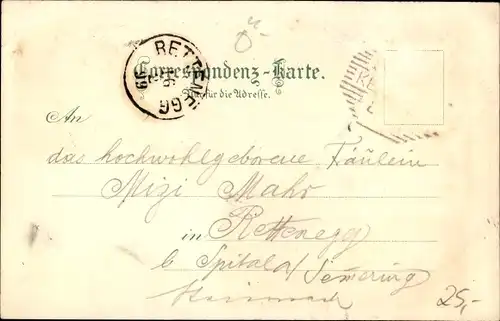 ö
RETTENEGG
Correspondenz-Karte.
Nur für die Adresse.
An
das hochwohlgeborene Fräulein
Mizi Mahr
in Rettenegg
b Spital a/Semering
Steiermark
25,-